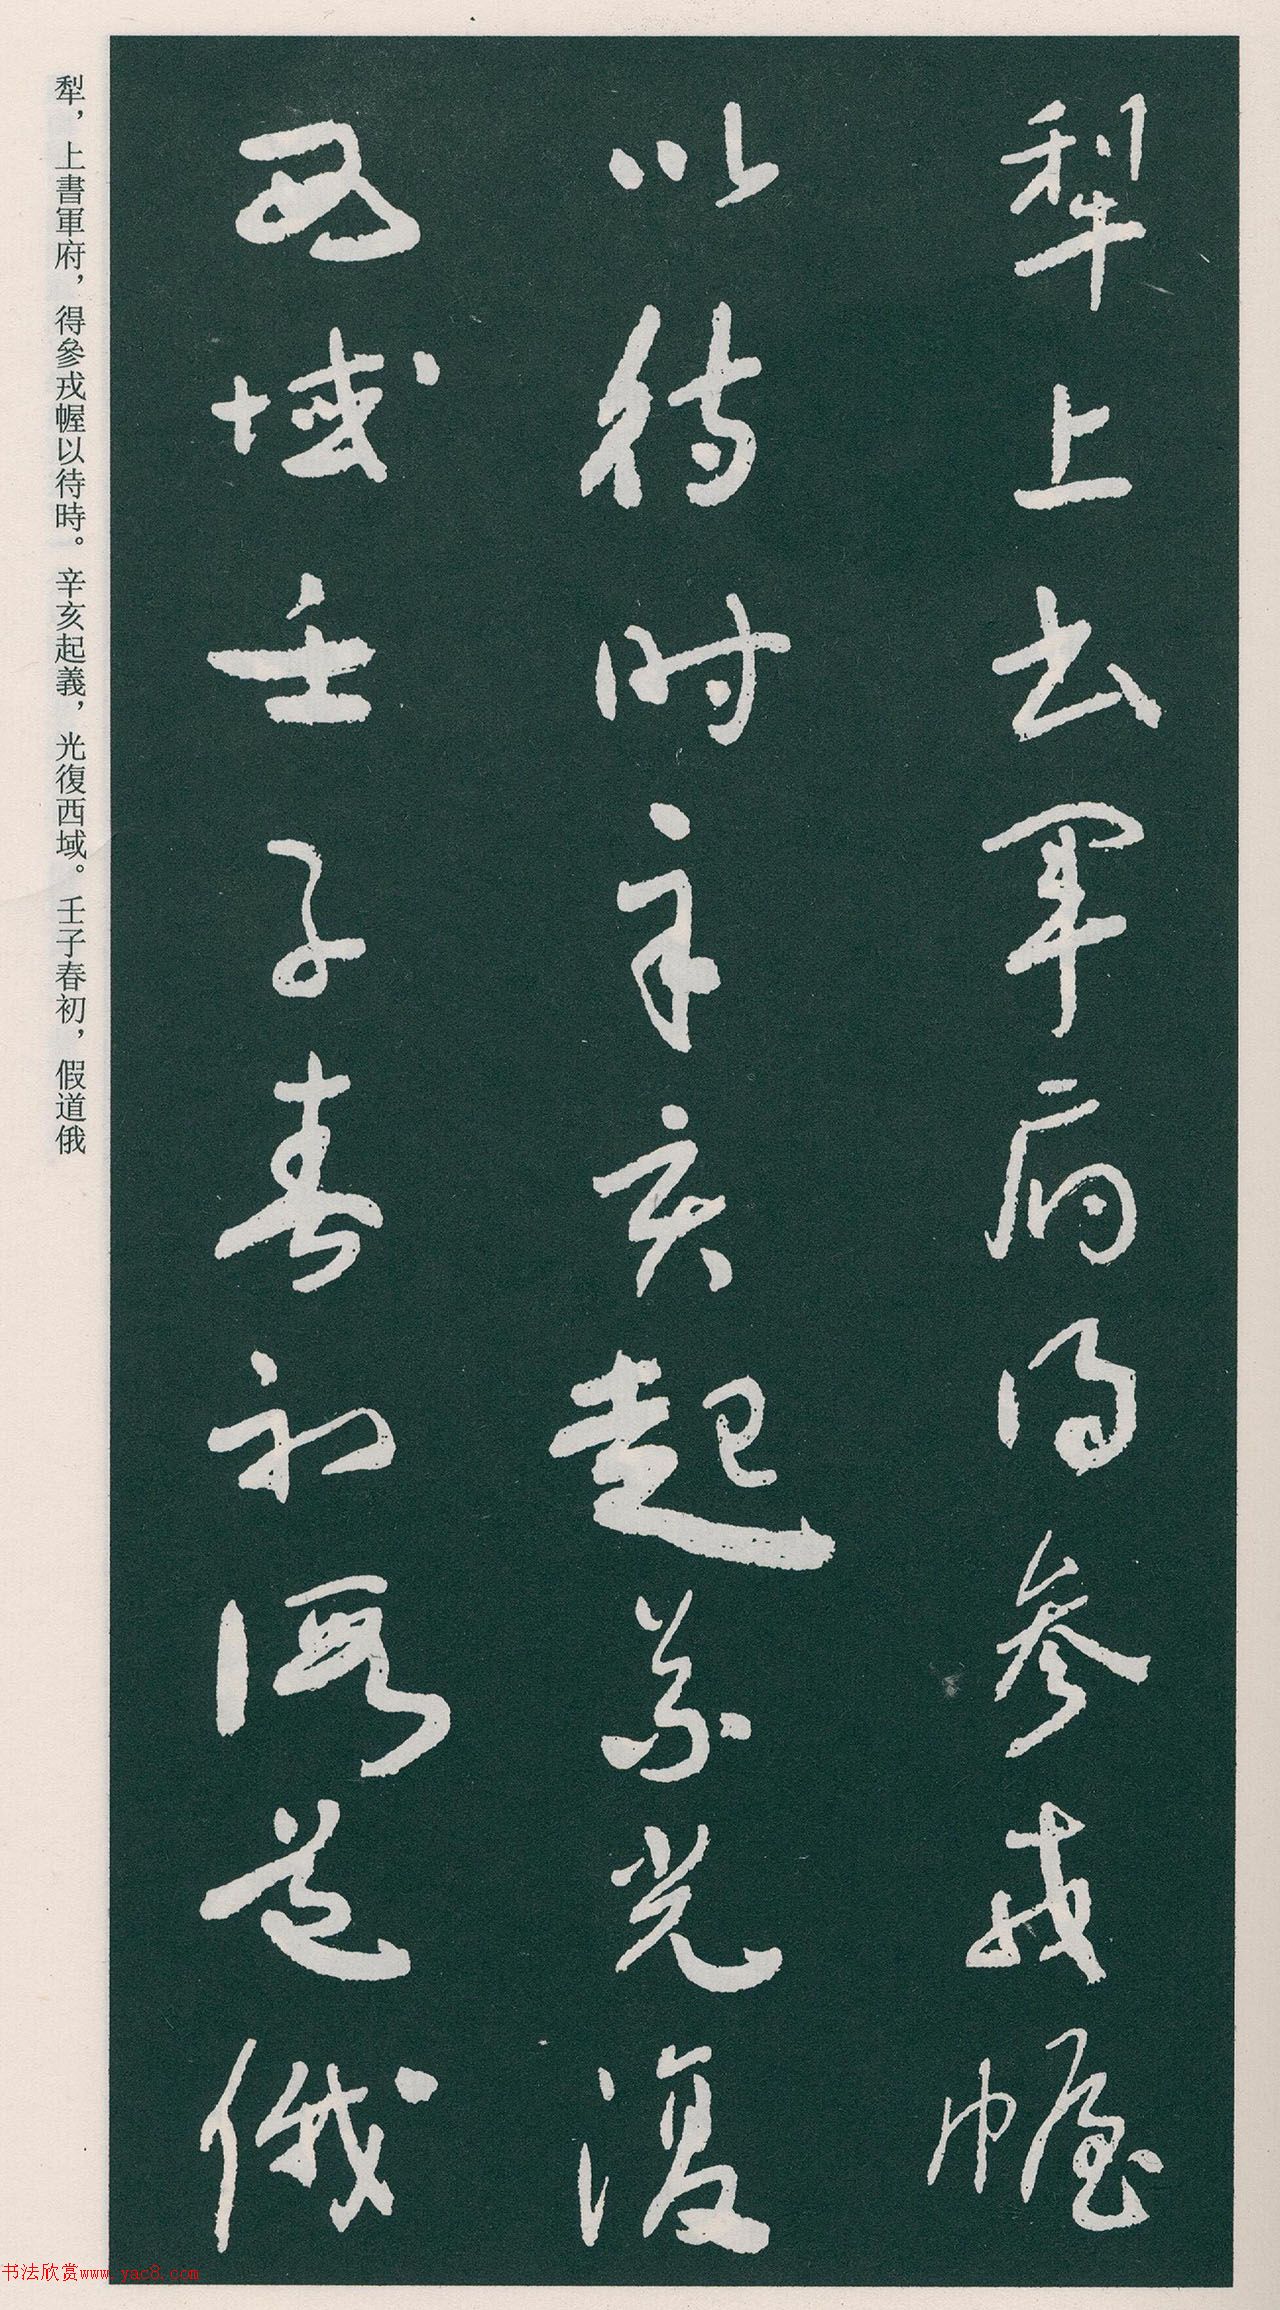 犁上书军府得参戎幄
以待时辛亥起义光復
西域壬子春初假道俄
犁，上書軍府，得參戎幄以待時。辛亥起義，光復西域。壬子春初，假道俄
书法欣赏www.yac8.com